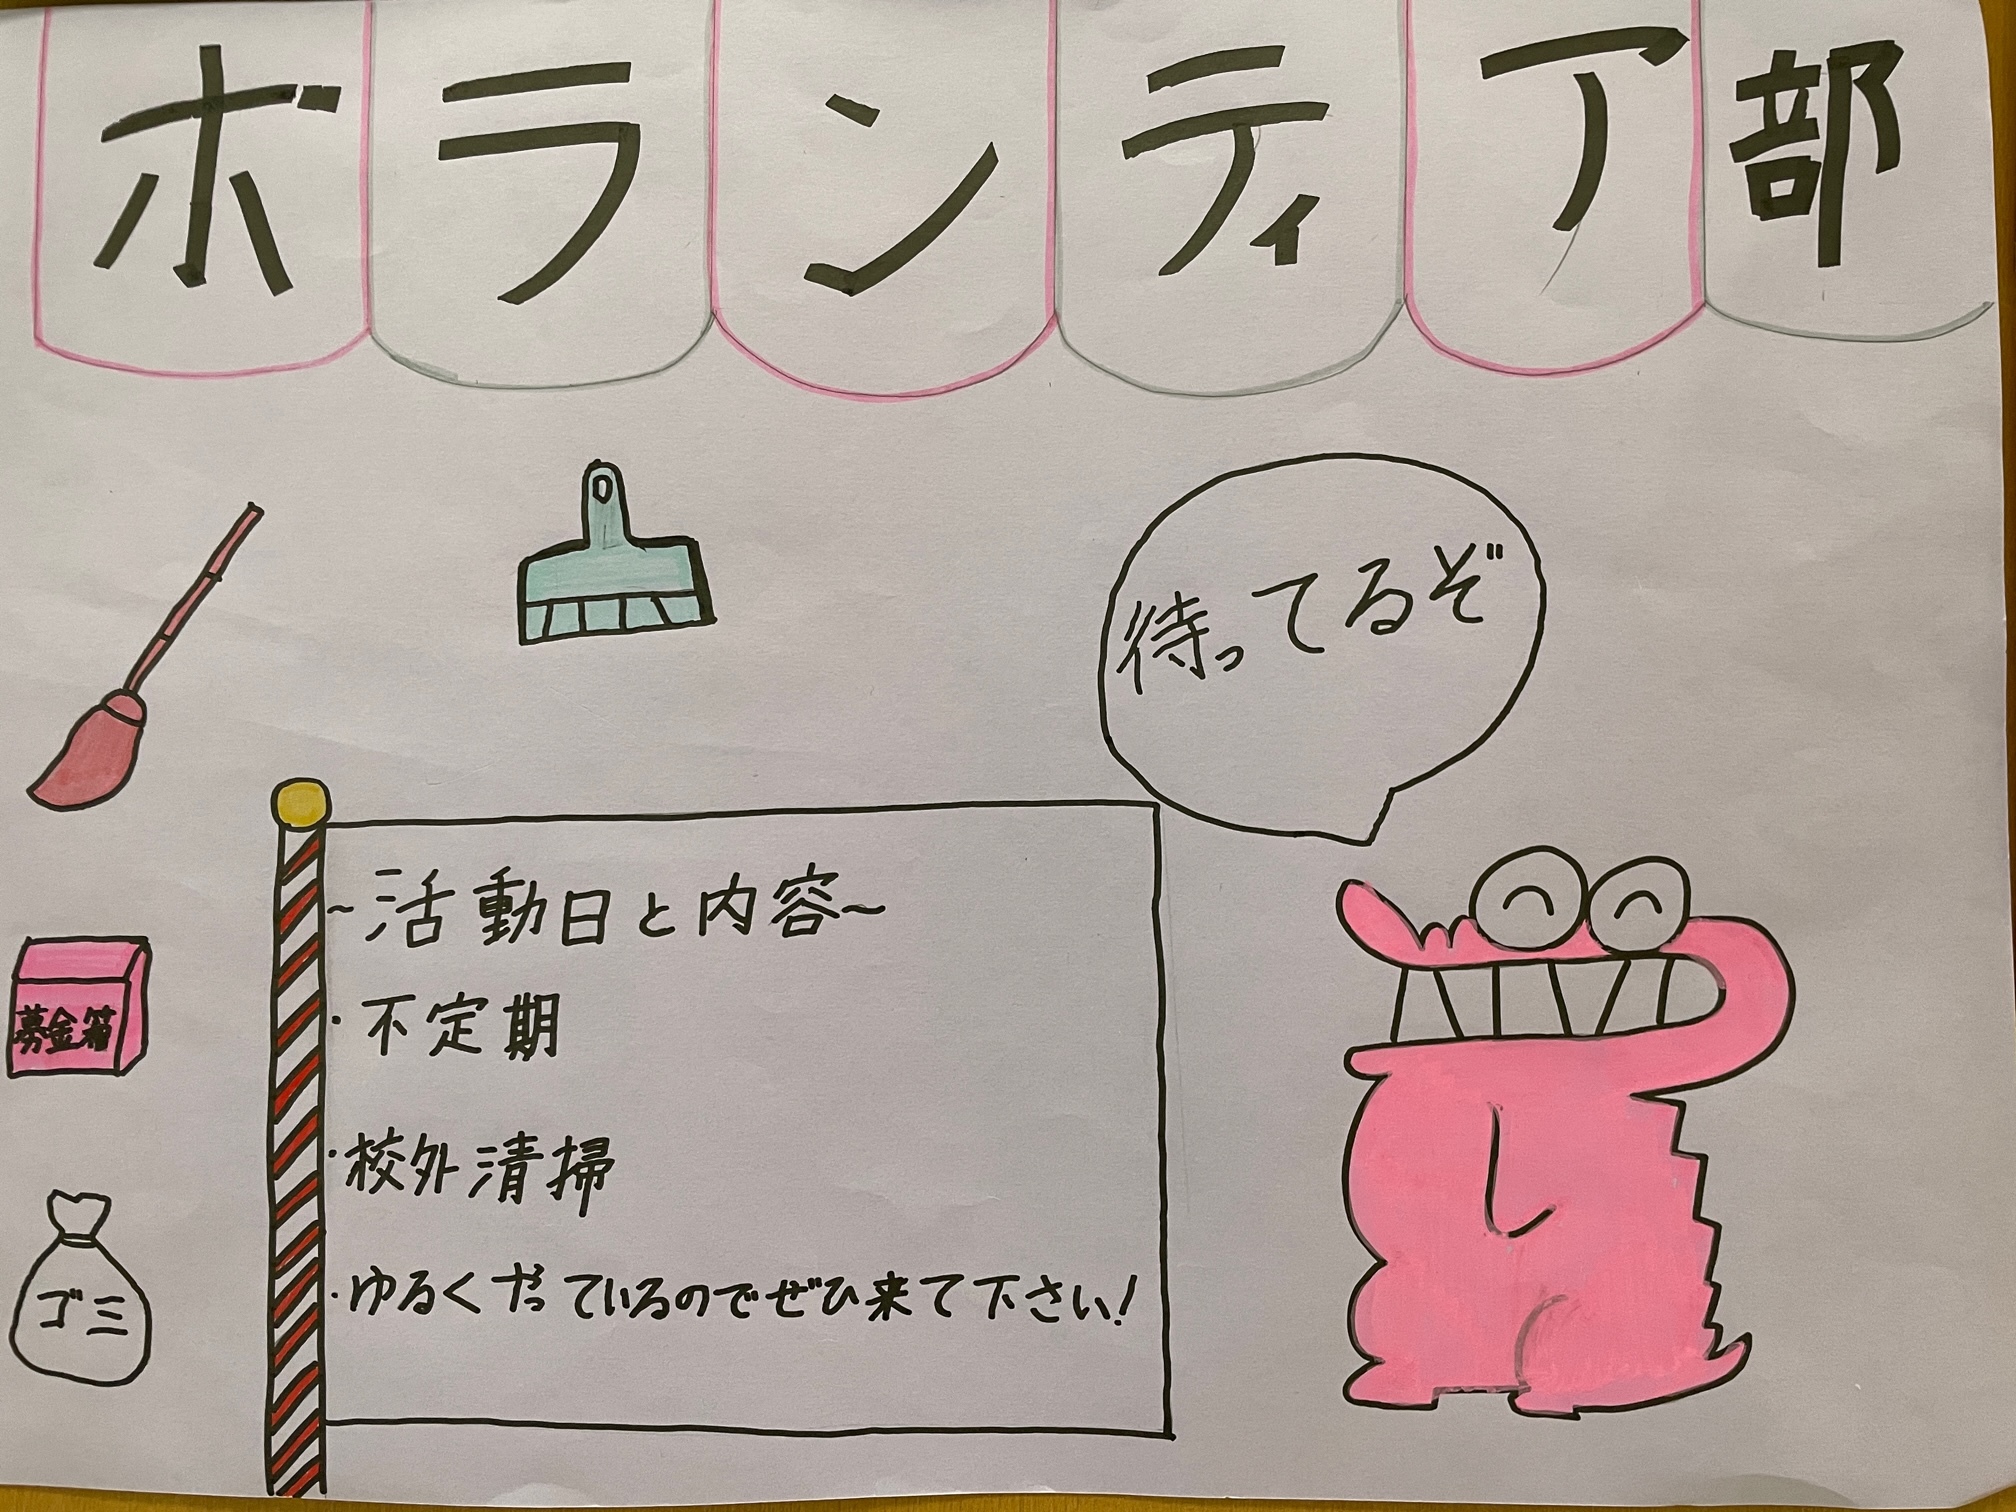 ボランティア部
待ってるぞ
~活動日と内容~
・不定期
・校外清掃
・ゆるくやっているのでぜひ来て下さい!
募金箱
ゴミ